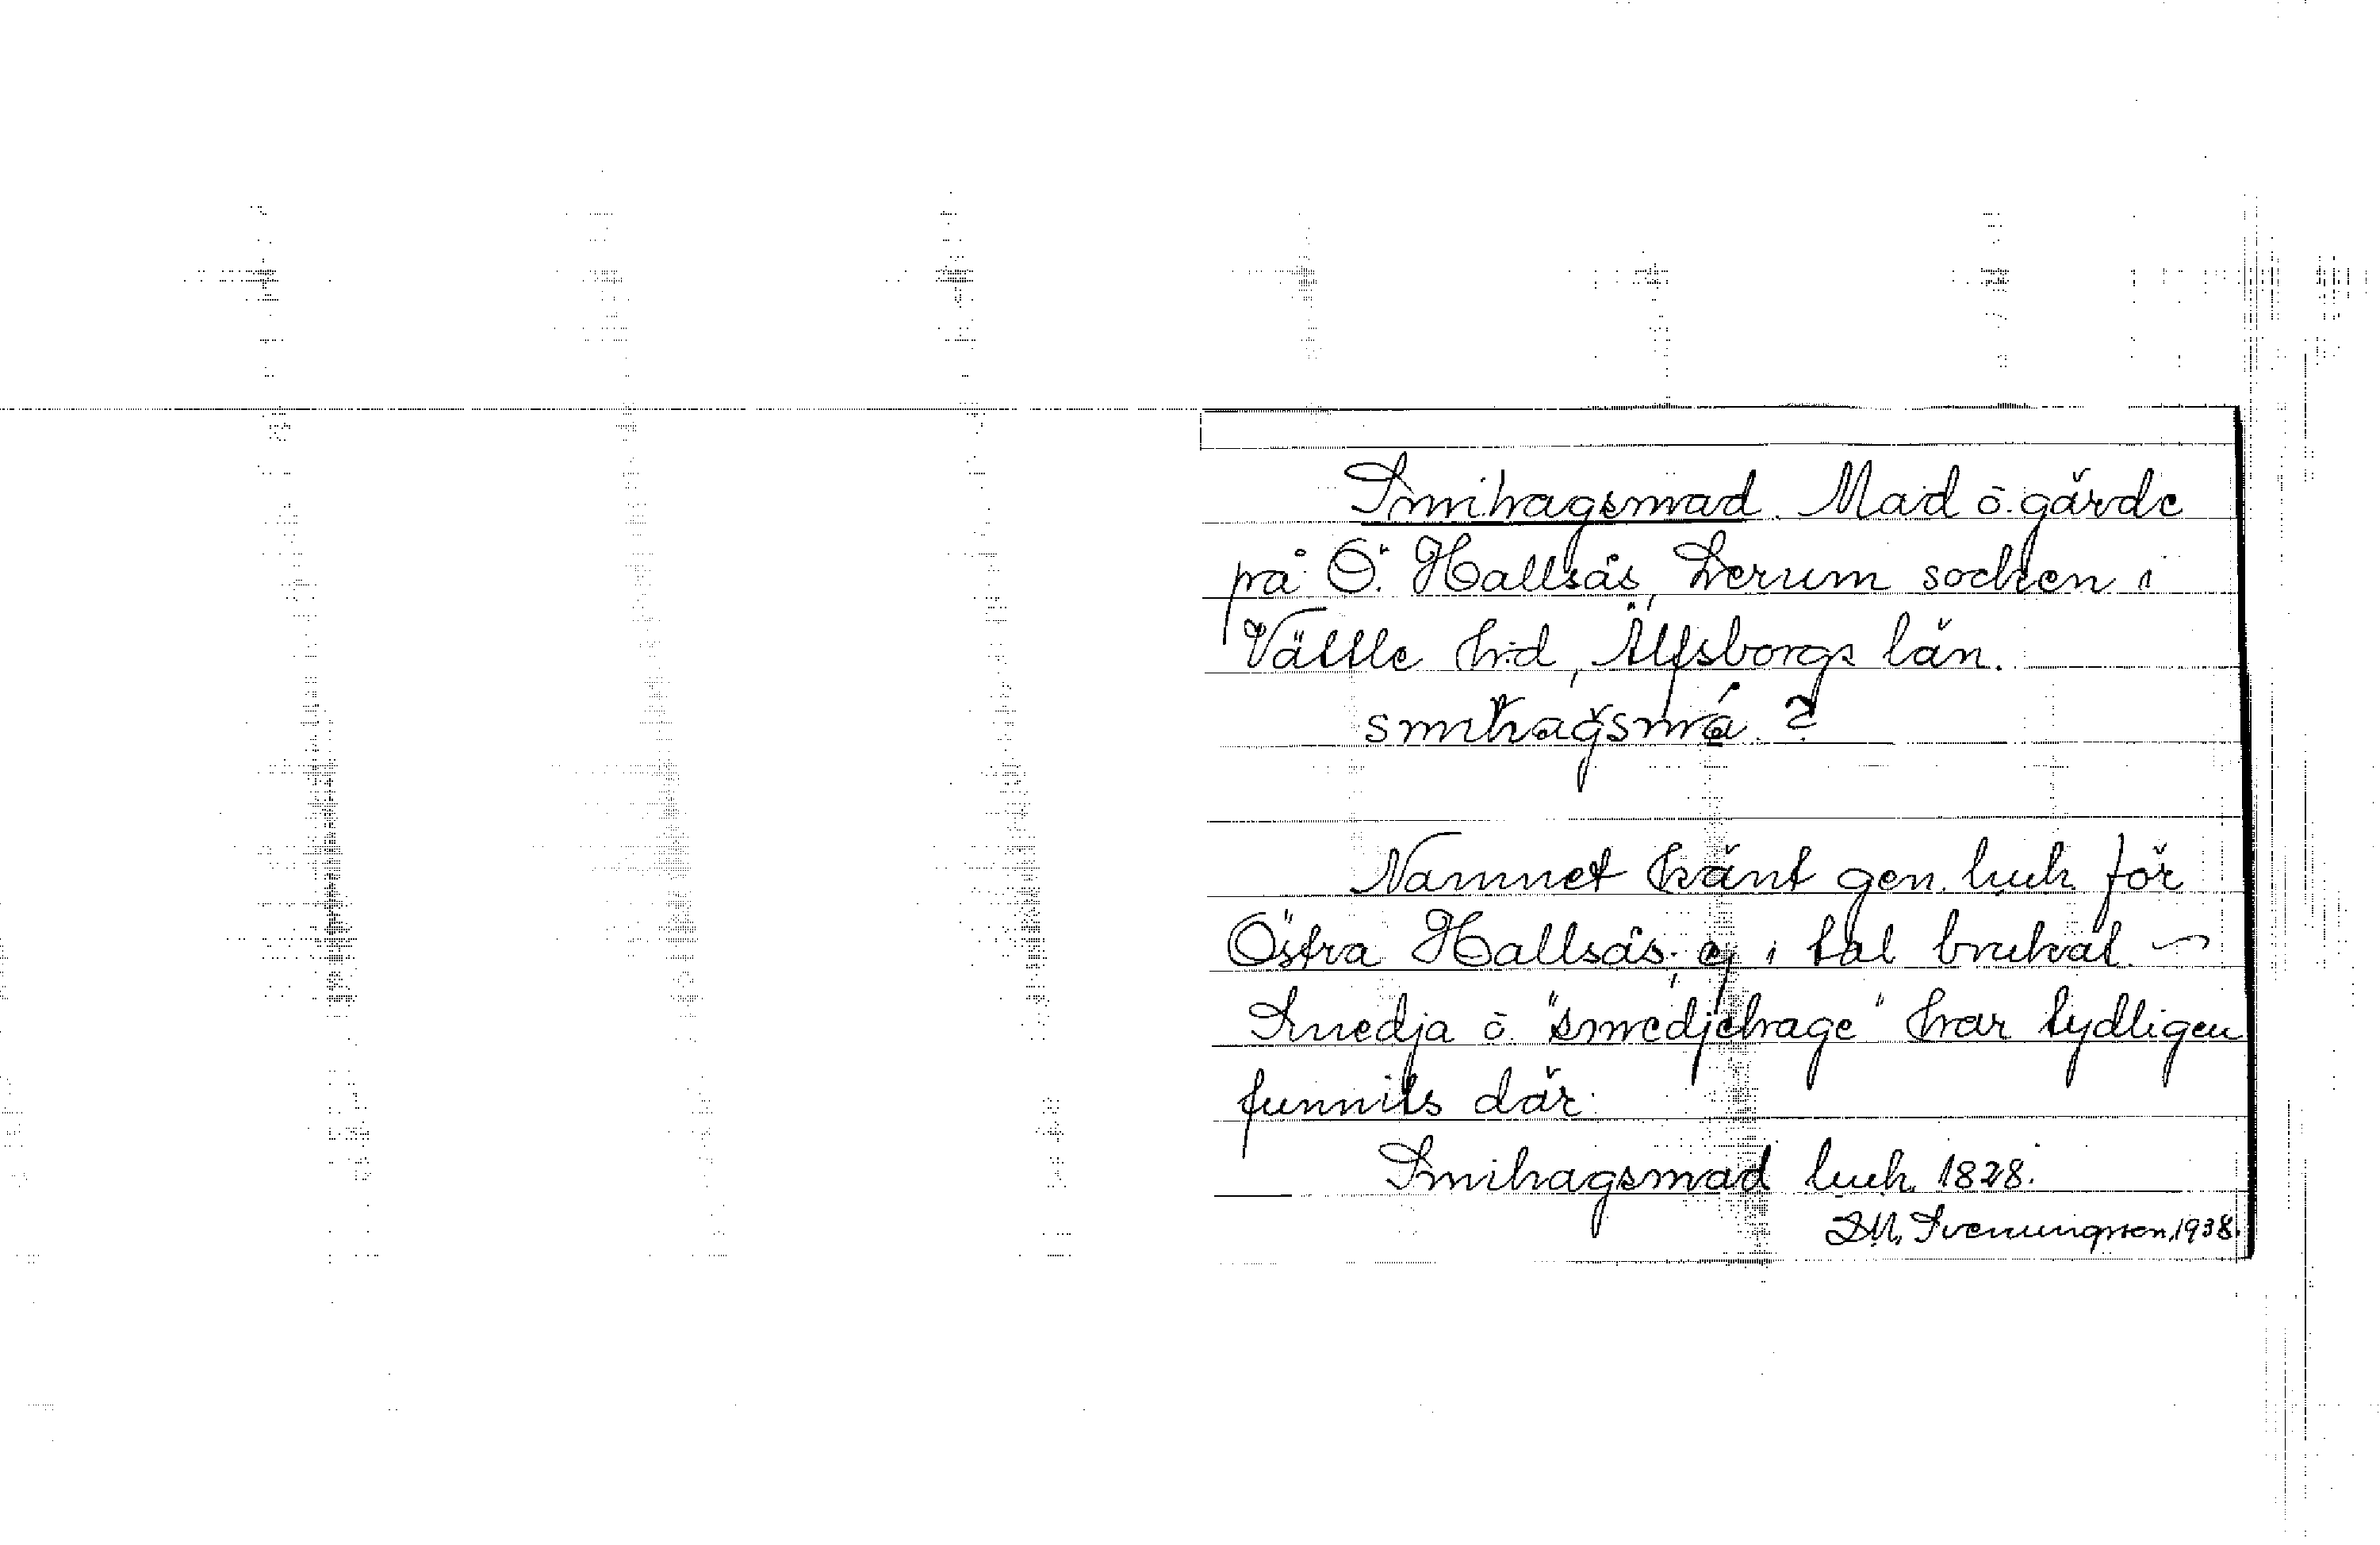 Smihagsmad. Mad o. gärde
på Ö. Hallsås, Lerum socken i
Vättle hd, Älfsborgs län.
smihagsmá. ?
Namnet känt gen. luh. för
Östra Hallsås; ej i tal brukat. ~
Smedja o. "smedjehage" har tydligen
funnits där.
Smihagsmad luh. 1828.
D.M. Svenungsson, 1938.